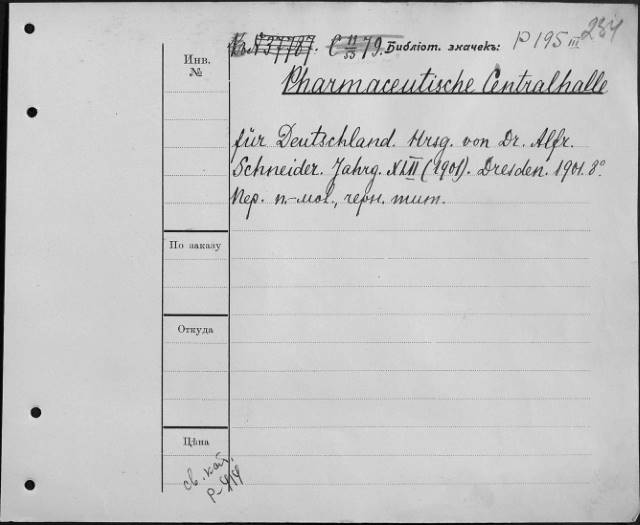 Къ № 37787. C 11/33 79. Библіот. значекъ: P 195 III 234
Инв. №
Pharmaceutische Centralhalle
für Deutschland. Hrsg. von Dr. Alfr.
Schneider. Jahrg. XLII (1901). Dresden. 1901. 8°
Пер. п.-мог., черн. тит.
По заказу
Откуда
Цѣна
св. кат.
P-414